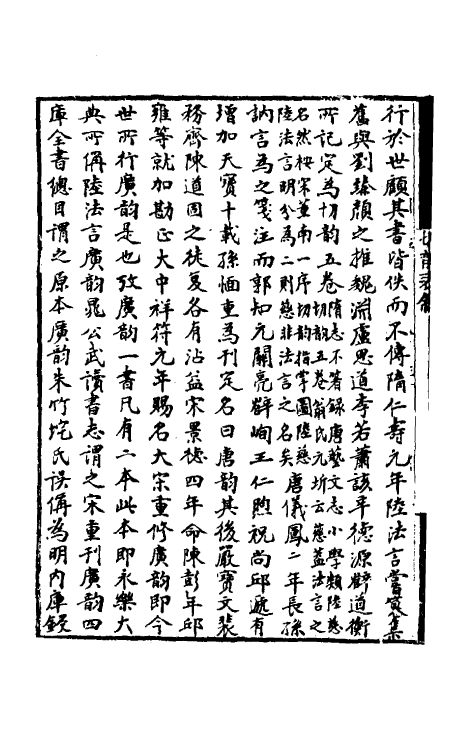 行於世顧其書皆佚而不傳隋仁壽元年陸法言嘗裒集
舊與劉臻顏之推魏淵盧思道李若蕭該辛德源薛道衡
所記定為切韵五卷隋志不著錄唐藝文志小學類陸慈
切韵五卷翁氏元圻云慈葢法言之
名然桉宋董南一序切韵指掌圖陸慈
陸法言明分為二則慈非法言之名矣唐儀鳳二年長孫
訥言為之箋注而郭知元關亮薛峋王仁煦祝尚邱遞有
增加天寶十載孫愐重為刊定名曰唐韵其後嚴寶文裴
務齊陳道固之徒复各有沾益宋景徳四年命陳彭年邱
雍等就加勘正大中祥符元年賜名大宋重修廣韵即今
世所行廣韵是也攷廣韵一書凡有二本此本即永樂大
典所偁陸法言廣韵晁公武讀書志謂之宋重刊廣韵四
庫全書總目謂之原本廣韵朱竹垞氏误偁為明内庫鋟